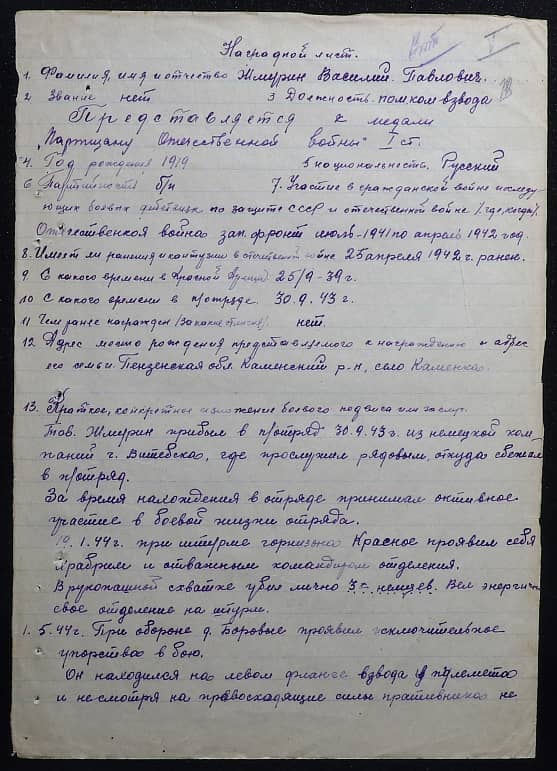 Наградной лист.
1. Фамилия, имя и отчество Жмурин Василий Павлович.
2 Звание нет 3 Должность помком взвода
Представляется к медали
"Партизану Отечественной войны" I ст.
4. Год рождения 1919 5 национальность. Русский
6 Партийность б/п 7. Участие в гражданской войне последу-
ющих боевых действиях по защите СССР и отечественной войне (где, когда).
Отечественная война зап. фронт июль-1941 по апрель 1942 год.
8. Имеет ли ранения и контузии в отечественной войне 25 апреля 1942 г. ранен.
9 С какого времени в Красной Армии 25/9-39 г.
10 С какого времени в п/отряде. 30.9.43 г.
11 Чем ранее награжден (за какие отличия). нет.
12 Адрес место рождения представляемого к награждению и адрес
его семьи. Пензенская обл. Каменский р-н, село Каменка.
13. Краткое, конкретное изложение боевого подвига или заслуг.
Тов. Жмурин прибыл в п/отряд 30.9.43 г. из немецкой ком-
паний г. Витебска, где прослужил рядовым, откуда сбежал
в п/отряд.
За время нахождения в отряде принимал активное
участие в боевой жизни отряда.
1.44 г. при штурме горнизона Красное проявил себя
храбрым и отважным командиром отделения.
В рукопашной схватке убил лично 3х немцев. Вел энергично
свое отделение на штурм.
1. 5.44 г. При обороне д. Боровые проявил исключительное
упорство в бою.
Он находился на левом фланге взвода у пулемета
и несмотря на превосходящие силы противника не